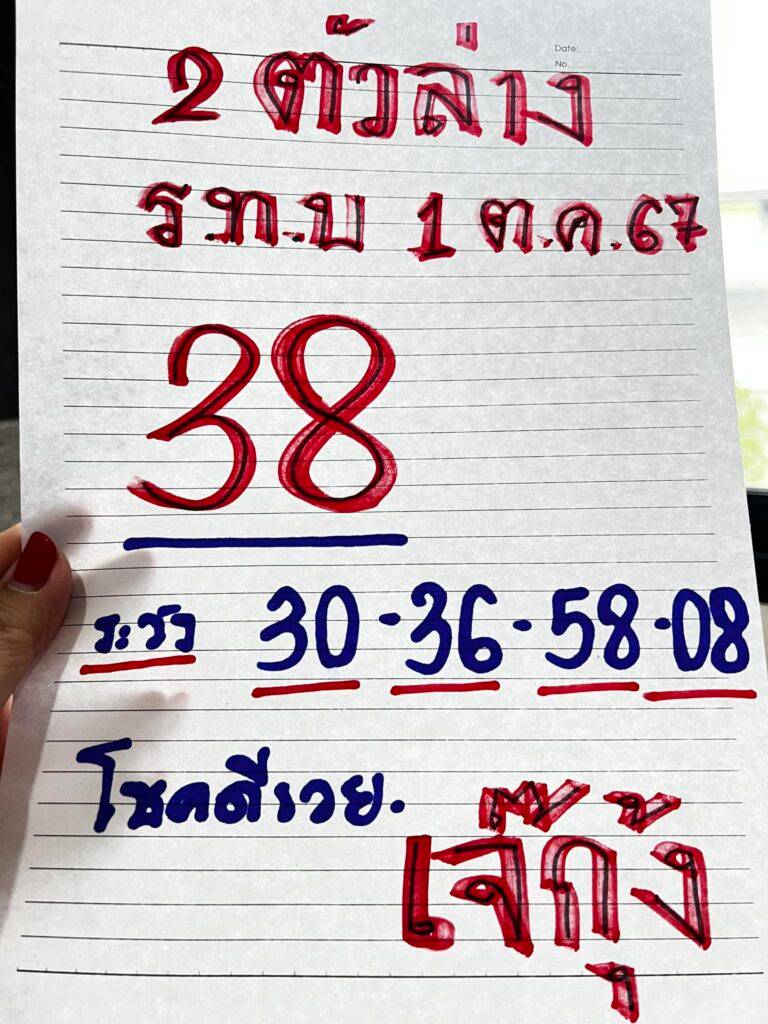 Date:
No.
2 ตัวล่าง
ร.ท.บ 1 ต.ค.67
38
ระวัง 30-36-58-08
โชคดีรวย.
เจ๊กุ้ง